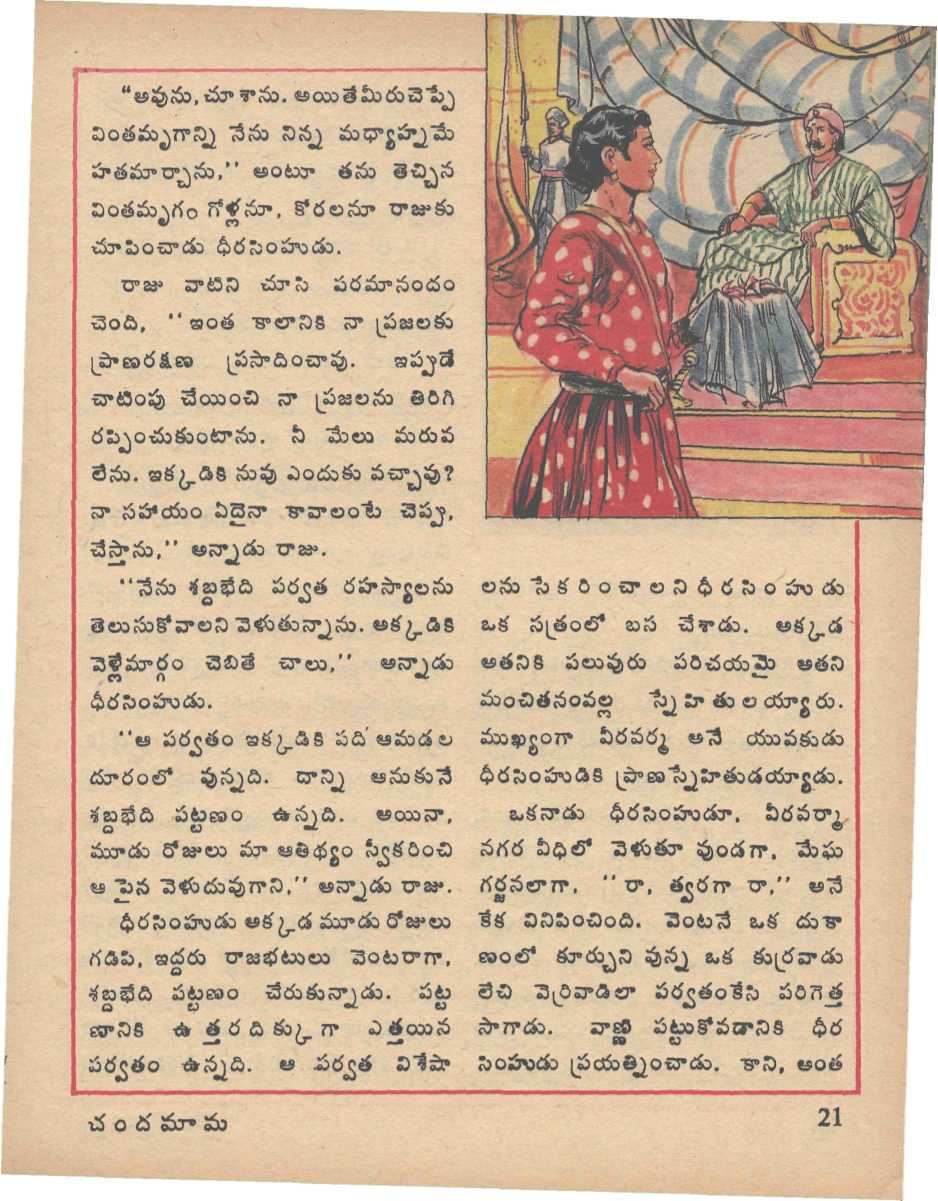 "అవును, చూశాను. అయితేమీరుచెప్పే
వింతమృగాన్ని నేను నిన్న మధ్యాహ్నమే
హతమార్చాను,'' అంటూ తను తెచ్చిన
వింతమృగం గోళ్లనూ, కోరలనూ రాజుకు
చూపించాడు ధీరసింహుడు.
రాజు వాటిని చూసి పరమానందం
చెంది, ''ఇంత కాలానికి నా ప్రజలకు
ప్రాణరక్షణ ప్రసాదించావు. ఇప్పుడే
చాటింపు చేయించి నా ప్రజలను తిరిగి
రప్పించుకుంటాను. నీ మేలు మరువ
లేను. ఇక్కడికి నువు ఎందుకు వచ్చావు?
నా సహాయం ఏదైనా కావాలంటే చెప్పు,
చేస్తాను,'' అన్నాడు రాజు.
''నేను శబ్దభేది పర్వత రహస్యాలను
తెలుసుకోవాలని వెళుతున్నాను. అక్కడికి
వెళ్లేమార్గం చెబితే చాలు,'' అన్నాడు
ధీరసింహుడు.
''ఆ పర్వతం ఇక్కడికి పది ఆమడల
దూరంలో వున్నది. దాన్ని ఆనుకునే
శబ్దభేది పట్టణం ఉన్నది. అయినా,
మూడు రోజులు మా ఆతిథ్యం స్వీకరించి
ఆ పైన వెళుదువుగాని,'' అన్నాడు రాజు.
ధీరసింహుడు అక్కడ మూడు రోజులు
గడిపి, ఇద్దరు రాజభటులు వెంటరాగా,
శబ్దభేది పట్టణం చేరుకున్నాడు. పట్ట
ణానికి ఉత్తరదిక్కుగా ఎత్తయిన
పర్వతం ఉన్నది. ఆ పర్వత విశేషా
లను సేకరించాలని ధీరసింహుడు
ఒక సత్రంలో బస చేశాడు. అక్కడ
అతనికి పలువురు పరిచయమై అతని
మంచితనంవల్ల స్నేహితులయ్యారు.
ముఖ్యంగా వీరవర్మ అనే యువకుడు
ధీరసింహుడికి ప్రాణస్నేహితుడయ్యాడు.
ఒకనాడు ధీరసింహుడూ, వీరవర్మా
నగర వీధిలో వెళుతూ వుండగా, మేఘ
గర్జనలాగా, ''రా, త్వరగా రా,'' అనే
కేక వినిపించింది. వెంటనే ఒక దుకా
ణంలో కూర్చుని వున్న ఒక కుర్రవాడు
లేచి వెర్రివాడిలా పర్వతంకేసి పరిగెత్త
సాగాడు. వాణ్ణి పట్టుకోవడానికి ధీర
సింహుడు ప్రయత్నించాడు. కాని, అంత
చందమామ
21